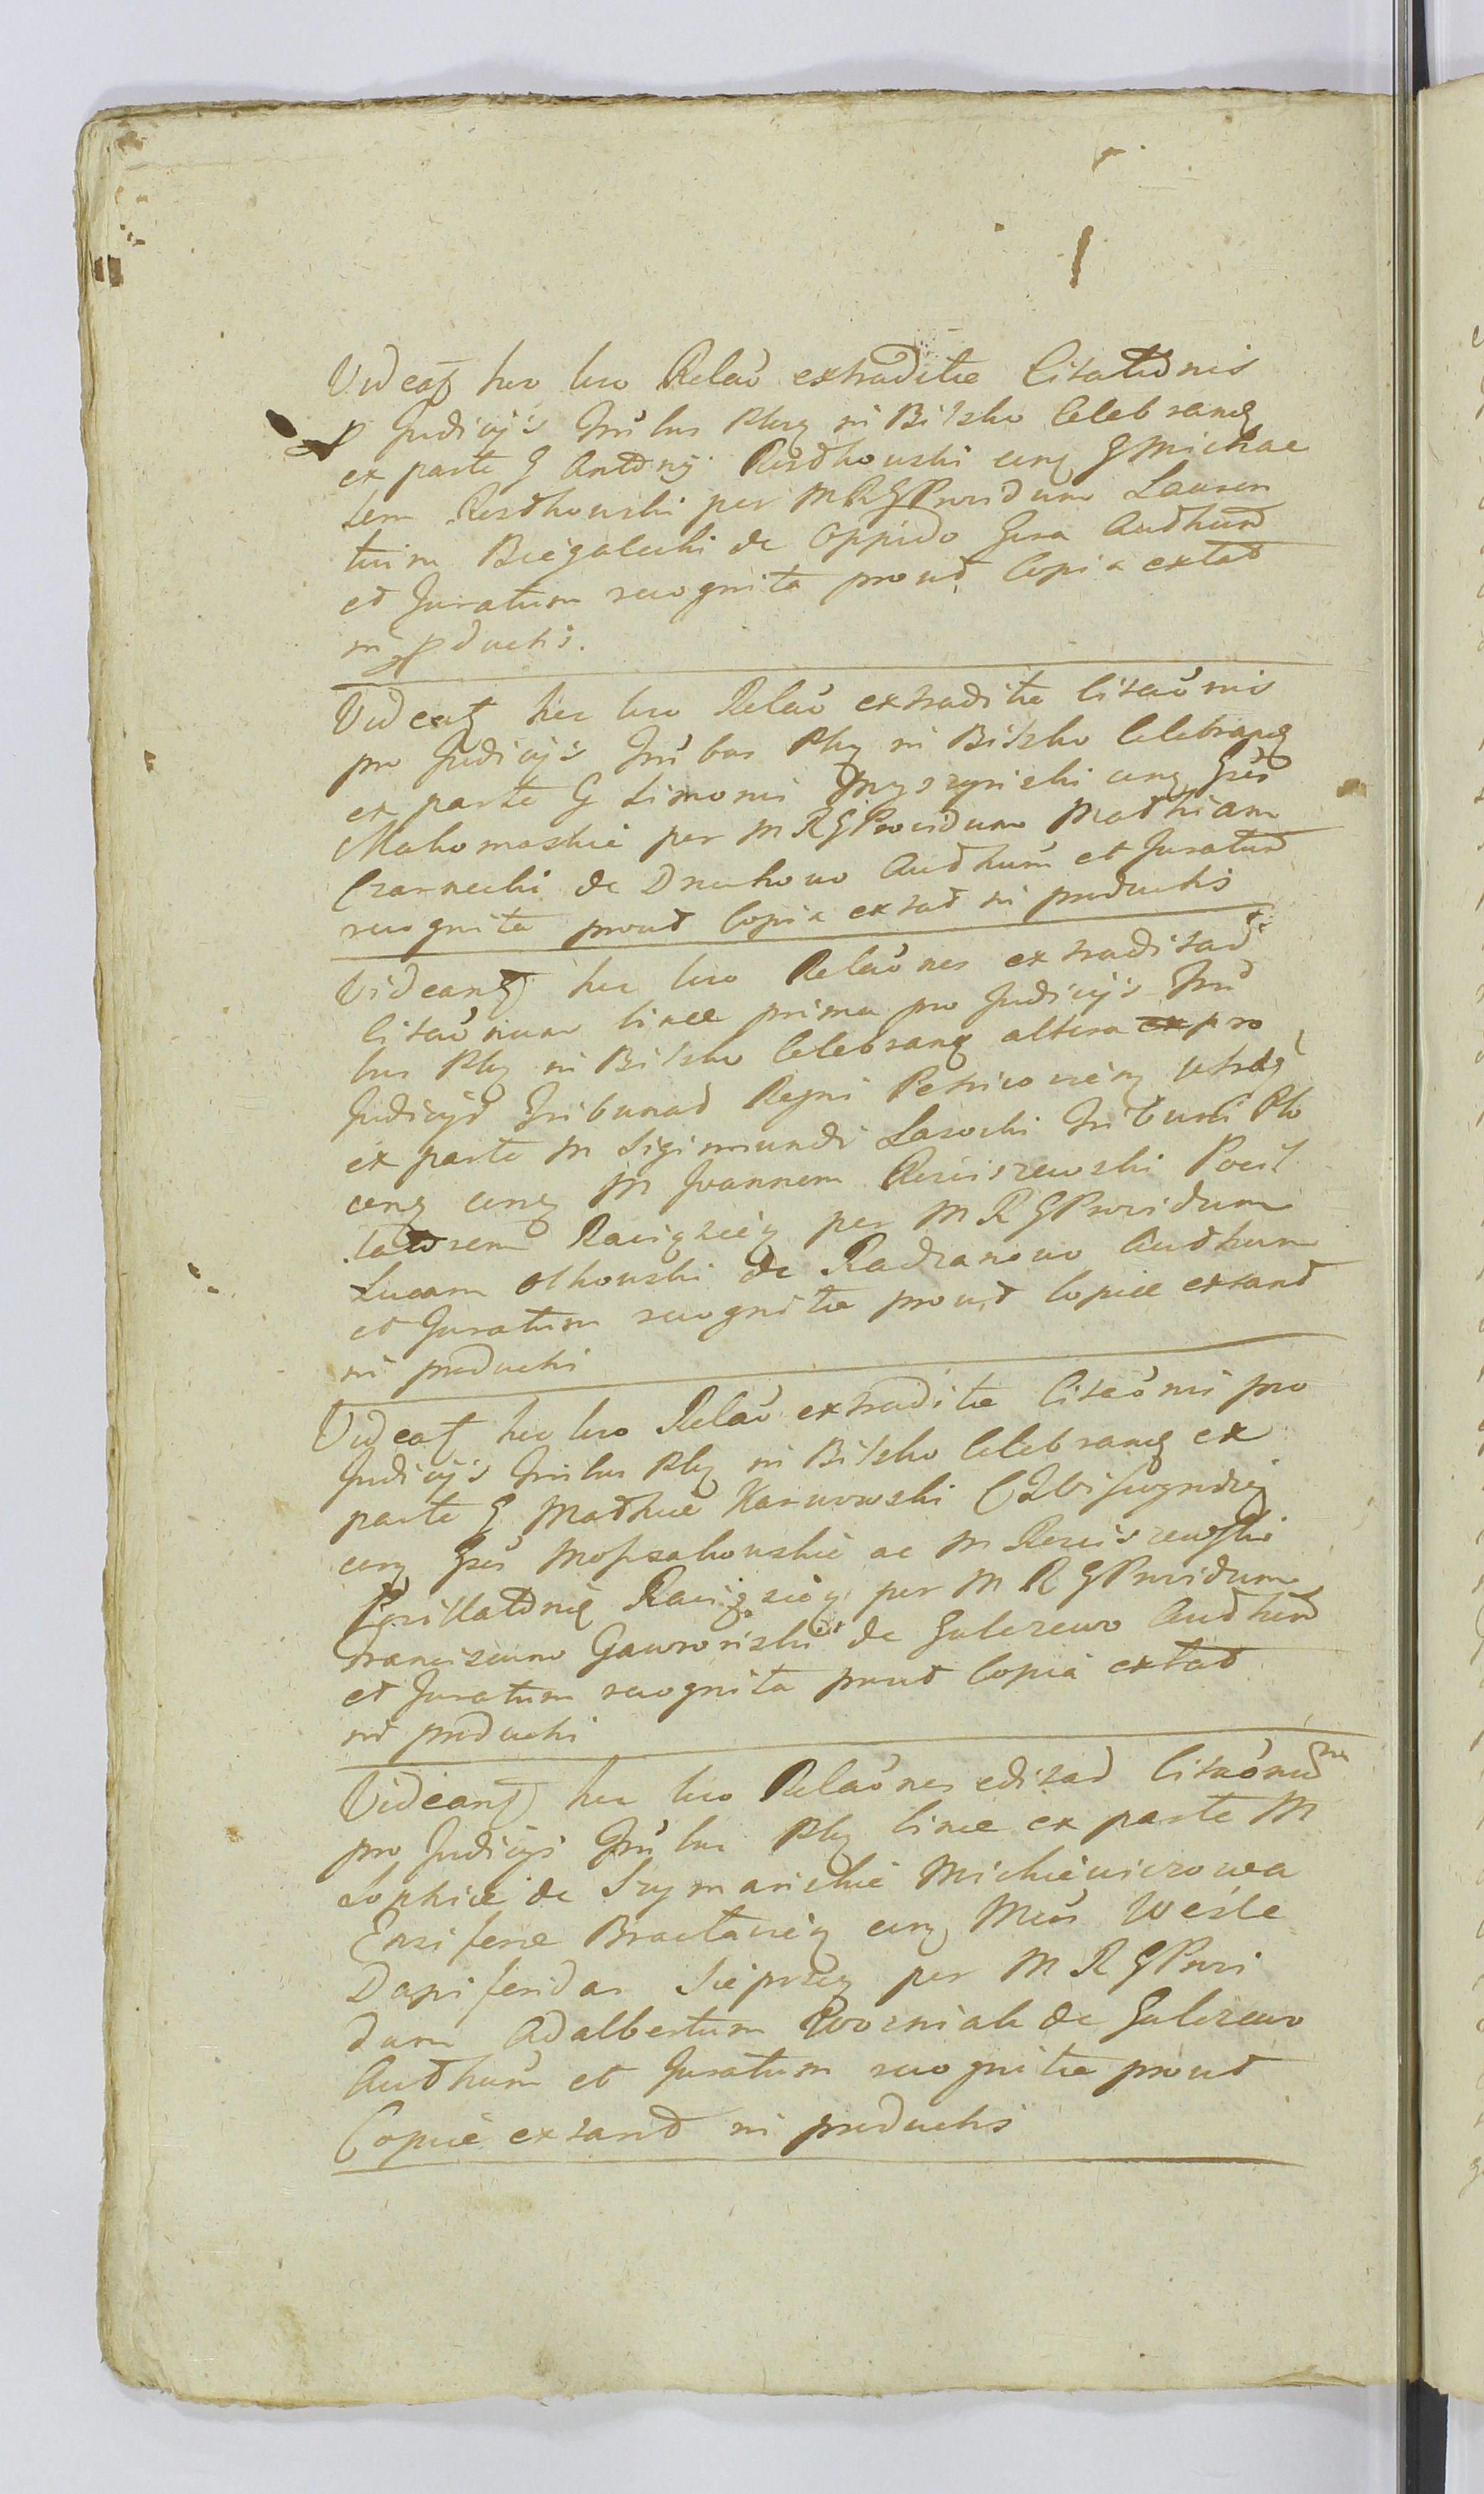 Videat hic loco Relaõ extraditæ Citationis
p Judicijs Tribus Plcg in Bilsko Celebrang
ex parte G Antonij Rosthowski cung G Michae
lem Rosthowski per MRG Providum Lauren
tium Biegalecki de Oppido Gura Auth
et Juratum recognita prout Copia extat
in pductis.
Videat hic loco Relaõ extraditæ Citaõnis
pro Judicijs Tribus Plcg in Bilsko Celebrang
ex parte G Simonis Myszynski cung Gsos
Makomaskie per MRG Providum Mathiam
Czarnecki de Druchowo Authum et Juratum
recognita prout Copia extat in productis
Videant hic loco Relaõnes extraditar
Citaõnum binæ prima pro Judicijs Tri
bus Plcg in Bilsko Celebrang altera ex pro
Judicijs Tribunal Regni Petricovien
ex parte M Sigismundi Lasocki Tribuni Plo
ceng cung M Joannem Rosciszewski Pocil
latorem Raciążien per M R G Providum
Lucam Olkowski de Radzanowo Authum
et Juratum recognitæ prout Copiæ extant
in producti
Videat hic loco Relaõ extraditæ Citaõnis pro
Judicijs Tribus Plcg in Bilsko Celebrang ex
parte G Mathiæ Karwowski
cung Gsos Mossakowskie ac M Rosciszewskie
Raciążien per M R G Providum
Franciscum Gaworski de Gulczewo Authum
et Juratum recognita prout Copia extat
in producti
Videant hic loco Relaõnes editar Citaõnum
pro Judicijs Tribus Plcg binæ ex parte M
Sophiæ de Szymanskie Mickiewiczowa
Ensiferæ Braclavien cung Mcos Wesle
Dapiferidas Sieprcen per M R G Provi
dum Adalbertum Wozniak de Gulczewo
Authum et Juratum recognitæ prout
Copiæ extant in productis